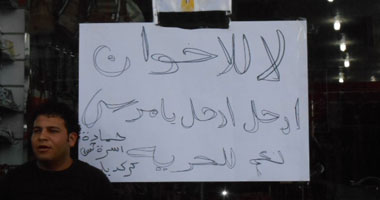 لا للاخوان
ارحل ارحل يا مرسى
نعم للحريه
حمادة
اسرة